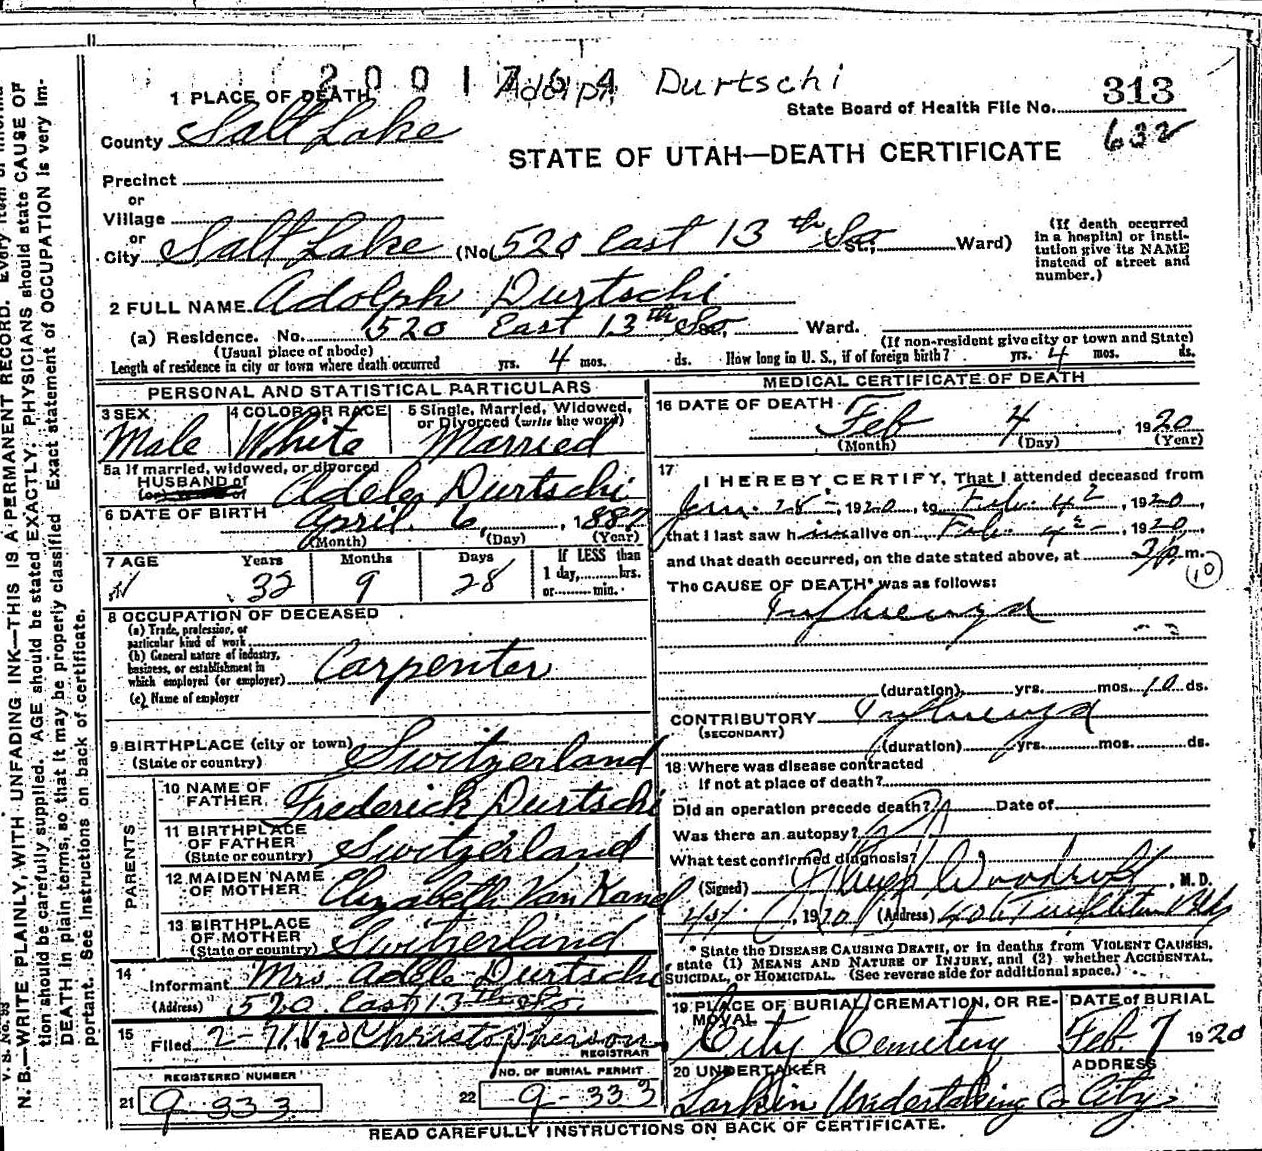 2001764 Adolph Durtschi
1 PLACE OF DEATH
State Board of Health File No. 313
632
County Salt Lake
STATE OF UTAH—DEATH CERTIFICATE
Precinct
or
Village
or
City Salt Lake (No. 520 East 13th So. St., Ward)
(If death occurred in a hospital or institution give its NAME instead of street and number.)
2 FULL NAME Adolph Durtschi
(a) Residence. No. 520 East 13th So. Ward.
(Usual place of abode) (If non-resident give city or town and State)
Length of residence in city or town where death occurred yrs. 4 mos. ds. How long in U. S., if of foreign birth? yrs. 4 mos. ds.
PERSONAL AND STATISTICAL PARTICULARS
3 SEX Male
4 COLOR OR RACE White
5 Single, Married, Widowed, or Divorced (write the word) Married
5a If married, widowed, or divorced
HUSBAND of
(or) WIFE of
Adele Durtschi
6 DATE OF BIRTH April 6, 1887
(Month) (Day) (Year)
7 AGE Years 32 Months 9 Days 28
If LESS than 1 day, hrs. or min.
8 OCCUPATION OF DECEASED
(a) Trade, profession, or particular kind of work
(b) General nature of industry, business, or establishment in which employed (or employer) Carpenter
(c) Name of employer
9 BIRTHPLACE (city or town)
(State or country) Switzerland
PARENTS
10 NAME OF FATHER Frederick Durtschi
11 BIRTHPLACE OF FATHER (State or country) Switzerland
12 MAIDEN NAME OF MOTHER Elizabeth Van Kanel
13 BIRTHPLACE OF MOTHER (State or country) Switzerland
14 Informant Mrs Adele Durtschi
(Address) 520 East 13th So.
15 Filed 2-7, 1920 Christopherson
REGISTRAR
REGISTERED NUMBER
21 9 333
NO. OF BURIAL PERMIT
22 9-333
MEDICAL CERTIFICATE OF DEATH
16 DATE OF DEATH Feb 4, 1920
(Month) (Day) (Year)
17 I HEREBY CERTIFY, That I attended deceased from
Jan. 28, 1920, to Feb. 4, 1920,
that I last saw him alive on Feb. 4, 1920,
and that death occurred, on the date stated above, at m.
10
The CAUSE OF DEATH* was as follows:
Influenza
(duration) yrs. mos. 10 ds.
CONTRIBUTORY Influenza
(SECONDARY)
(duration) yrs. mos. ds.
18 Where was disease contracted
if not at place of death?
Did an operation precede death? Date of
Was there an autopsy?
What test confirmed diagnosis?
(Signed) , M. D.
, 1920 (Address)
* State the DISEASE CAUSING DEATH, or in deaths from VIOLENT CAUSES,
state (1) MEANS AND NATURE OF INJURY, and (2) whether ACCIDENTAL,
SUICIDAL, or HOMICIDAL. (See reverse side for additional space.)
19 PLACE OF BURIAL, CREMATION, OR REMOVAL City Cemetery
DATE of BURIAL Feb 7 1920
20 UNDERTAKER Larkin Undertaking Co
ADDRESS City
READ CAREFULLY INSTRUCTIONS ON BACK OF CERTIFICATE.
V. S. No. 93
N. B.—WRITE PLAINLY, WITH UNFADING INK—THIS IS A PERMANENT RECORD. Every item of
tion should be carefully supplied. AGE should be stated EXACTLY. PHYSICIANS should state CAUSE OF
DEATH in plain terms, so that it may be properly classified. Exact statement of OCCUPATION is very im-
portant. See Instructions on back of certificate.